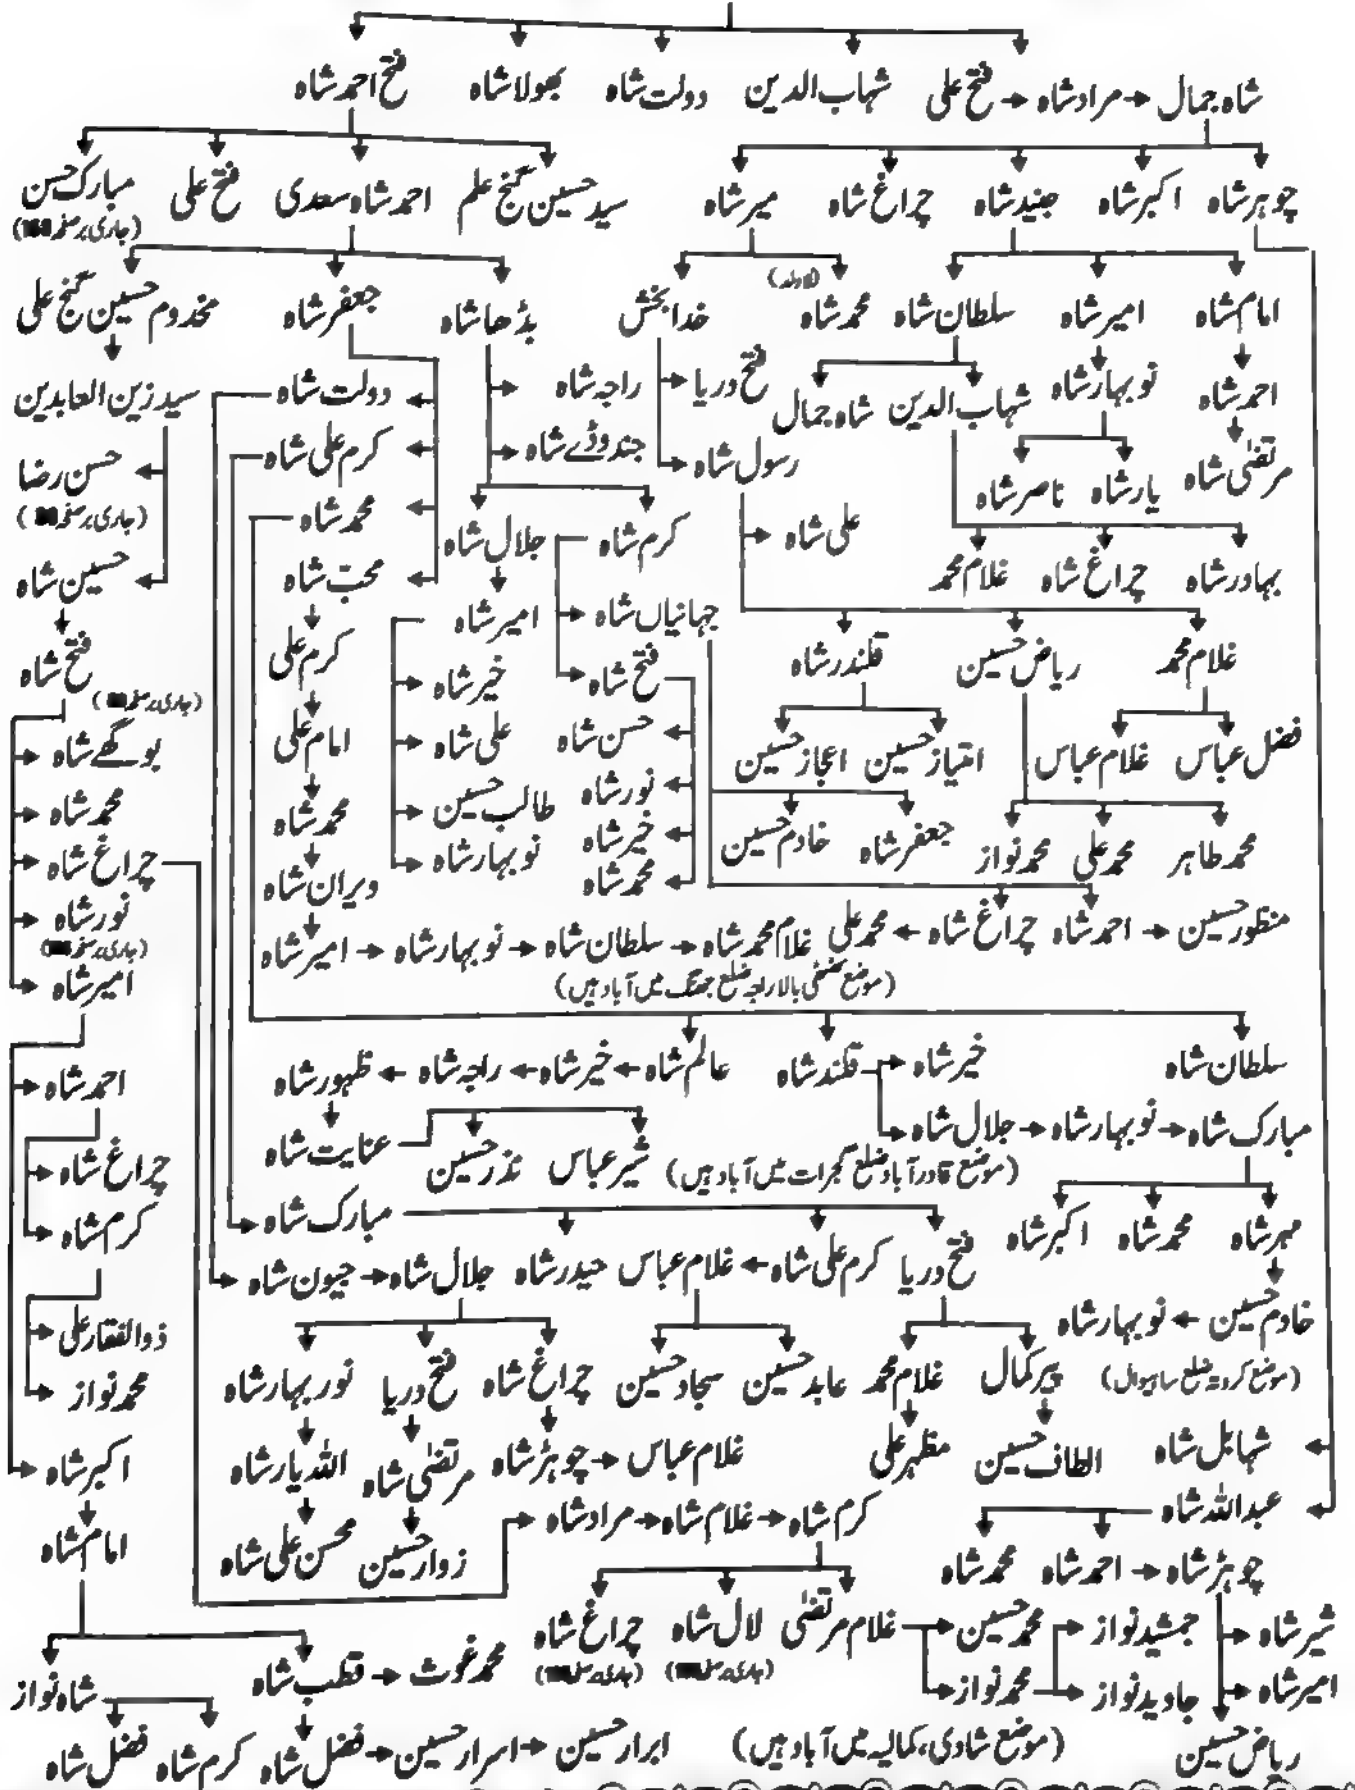 شاہ جمال مراد شاہ فتح علی شہاب الدین دولت شاہ بھولا شاہ فتح احمد شاہ
چوہر شاہ اکبر شاہ جنید شاہ چراغ شاہ میر شاہ سید حسین گنج علم احمد شاہ سعدی فتح علی مبارک حسن
(جاری بر صفحہ)
(لاولد)
امام شاہ امیر شاہ سلطان شاہ محمد شاہ خدا بخش بڈھا شاہ جعفر شاہ مخدوم حسین گنج علی
احمد شاہ نوبہار شاہ شہاب الدین شاہ جمال فتح دریا راجہ شاہ دولت شاہ سید زین العابدین
مرتضیٰ شاہ یار شاہ ناصر شاہ رسول شاہ جندوڈے شاہ کرم علی شاہ حسن رضا
(جاری بر صفحہ)
علی شاہ کرم شاہ جلال شاہ محمد شاہ
بہادر شاہ چراغ شاہ غلام محمد محب شاہ حسین شاہ
جہانیاں شاہ امیر شاہ
غلام محمد ریاض حسین قلندر شاہ فتح شاہ خیر شاہ کرم علی فتح شاہ
(جاری بر صفحہ)
فضل عباس غلام عباس امتیاز حسین اعجاز حسین حسن شاہ علی شاہ امام علی بوگھے شاہ
نور شاہ طالب حسین محمد شاہ محمد شاہ
محمد طاہر محمد علی محمد نواز جعفر شاہ خادم حسین خیر شاہ نوبہار شاہ چراغ شاہ
محمد شاہ ویران شاہ
منظور حسین احمد شاہ چراغ شاہ محمد علی غلام محمد شاہ سلطان شاہ نوبہار شاہ امیر شاہ نور شاہ
(جاری بر صفحہ)
بالا راجہ ضلع جھنگ میں آباد ہیں) امیر شاہ
سلطان شاہ خیر شاہ قلندر شاہ عالم شاہ خیر شاہ راجہ شاہ ظہور شاہ احمد شاہ
مبارک شاہ نوبہار شاہ جلال شاہ
(موضع قادر آباد ضلع گجرات میں آباد ہیں) شیر عباس نذر حسین عنایت شاہ چراغ شاہ
مہر شاہ محمد شاہ اکبر شاہ مبارک شاہ کرم شاہ
فتح دریا کرم علی شاہ غلام عباس حیدر شاہ جلال شاہ جیون شاہ
خادم حسین نوبہار شاہ ذوالفقار علی
ضلع ساہیوال) پیر کمال غلام محمد عابد حسین سجاد حسین چراغ شاہ فتح دریا نور بہار شاہ محمد نواز
شہابل شاہ الطاف حسین مظہر علی غلام عباس چوہڑ شاہ مرتضیٰ شاہ اللہ یار شاہ اکبر شاہ
عبداللہ شاہ کرم شاہ غلام شاہ مراد شاہ
چوہڑ شاہ احمد شاہ محمد شاہ زوار حسین محسن علی شاہ امام شاہ
شیر شاہ جمشید نواز محمد حسین غلام مرتضیٰ لال شاہ چراغ شاہ
امیر شاہ جاوید نواز محمد نواز محمد غوث قطب شاہ شاہ نواز
ریاض حسین (موضع شادی، کمالیہ میں آباد ہیں) ابرار حسین اسرار حسین فضل شاہ کرم شاہ فضل شاہ